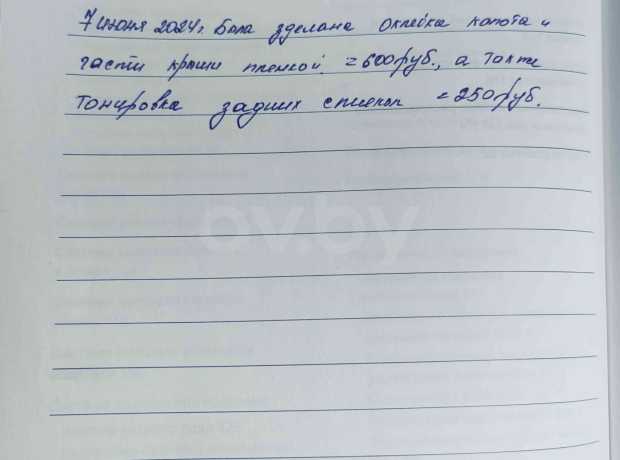 7 июня 2024г. Была зделана оклейка капота и
части крыши пленкой. = 600 руб., а также
Тонировка задних стекол = 250 руб.
av.by